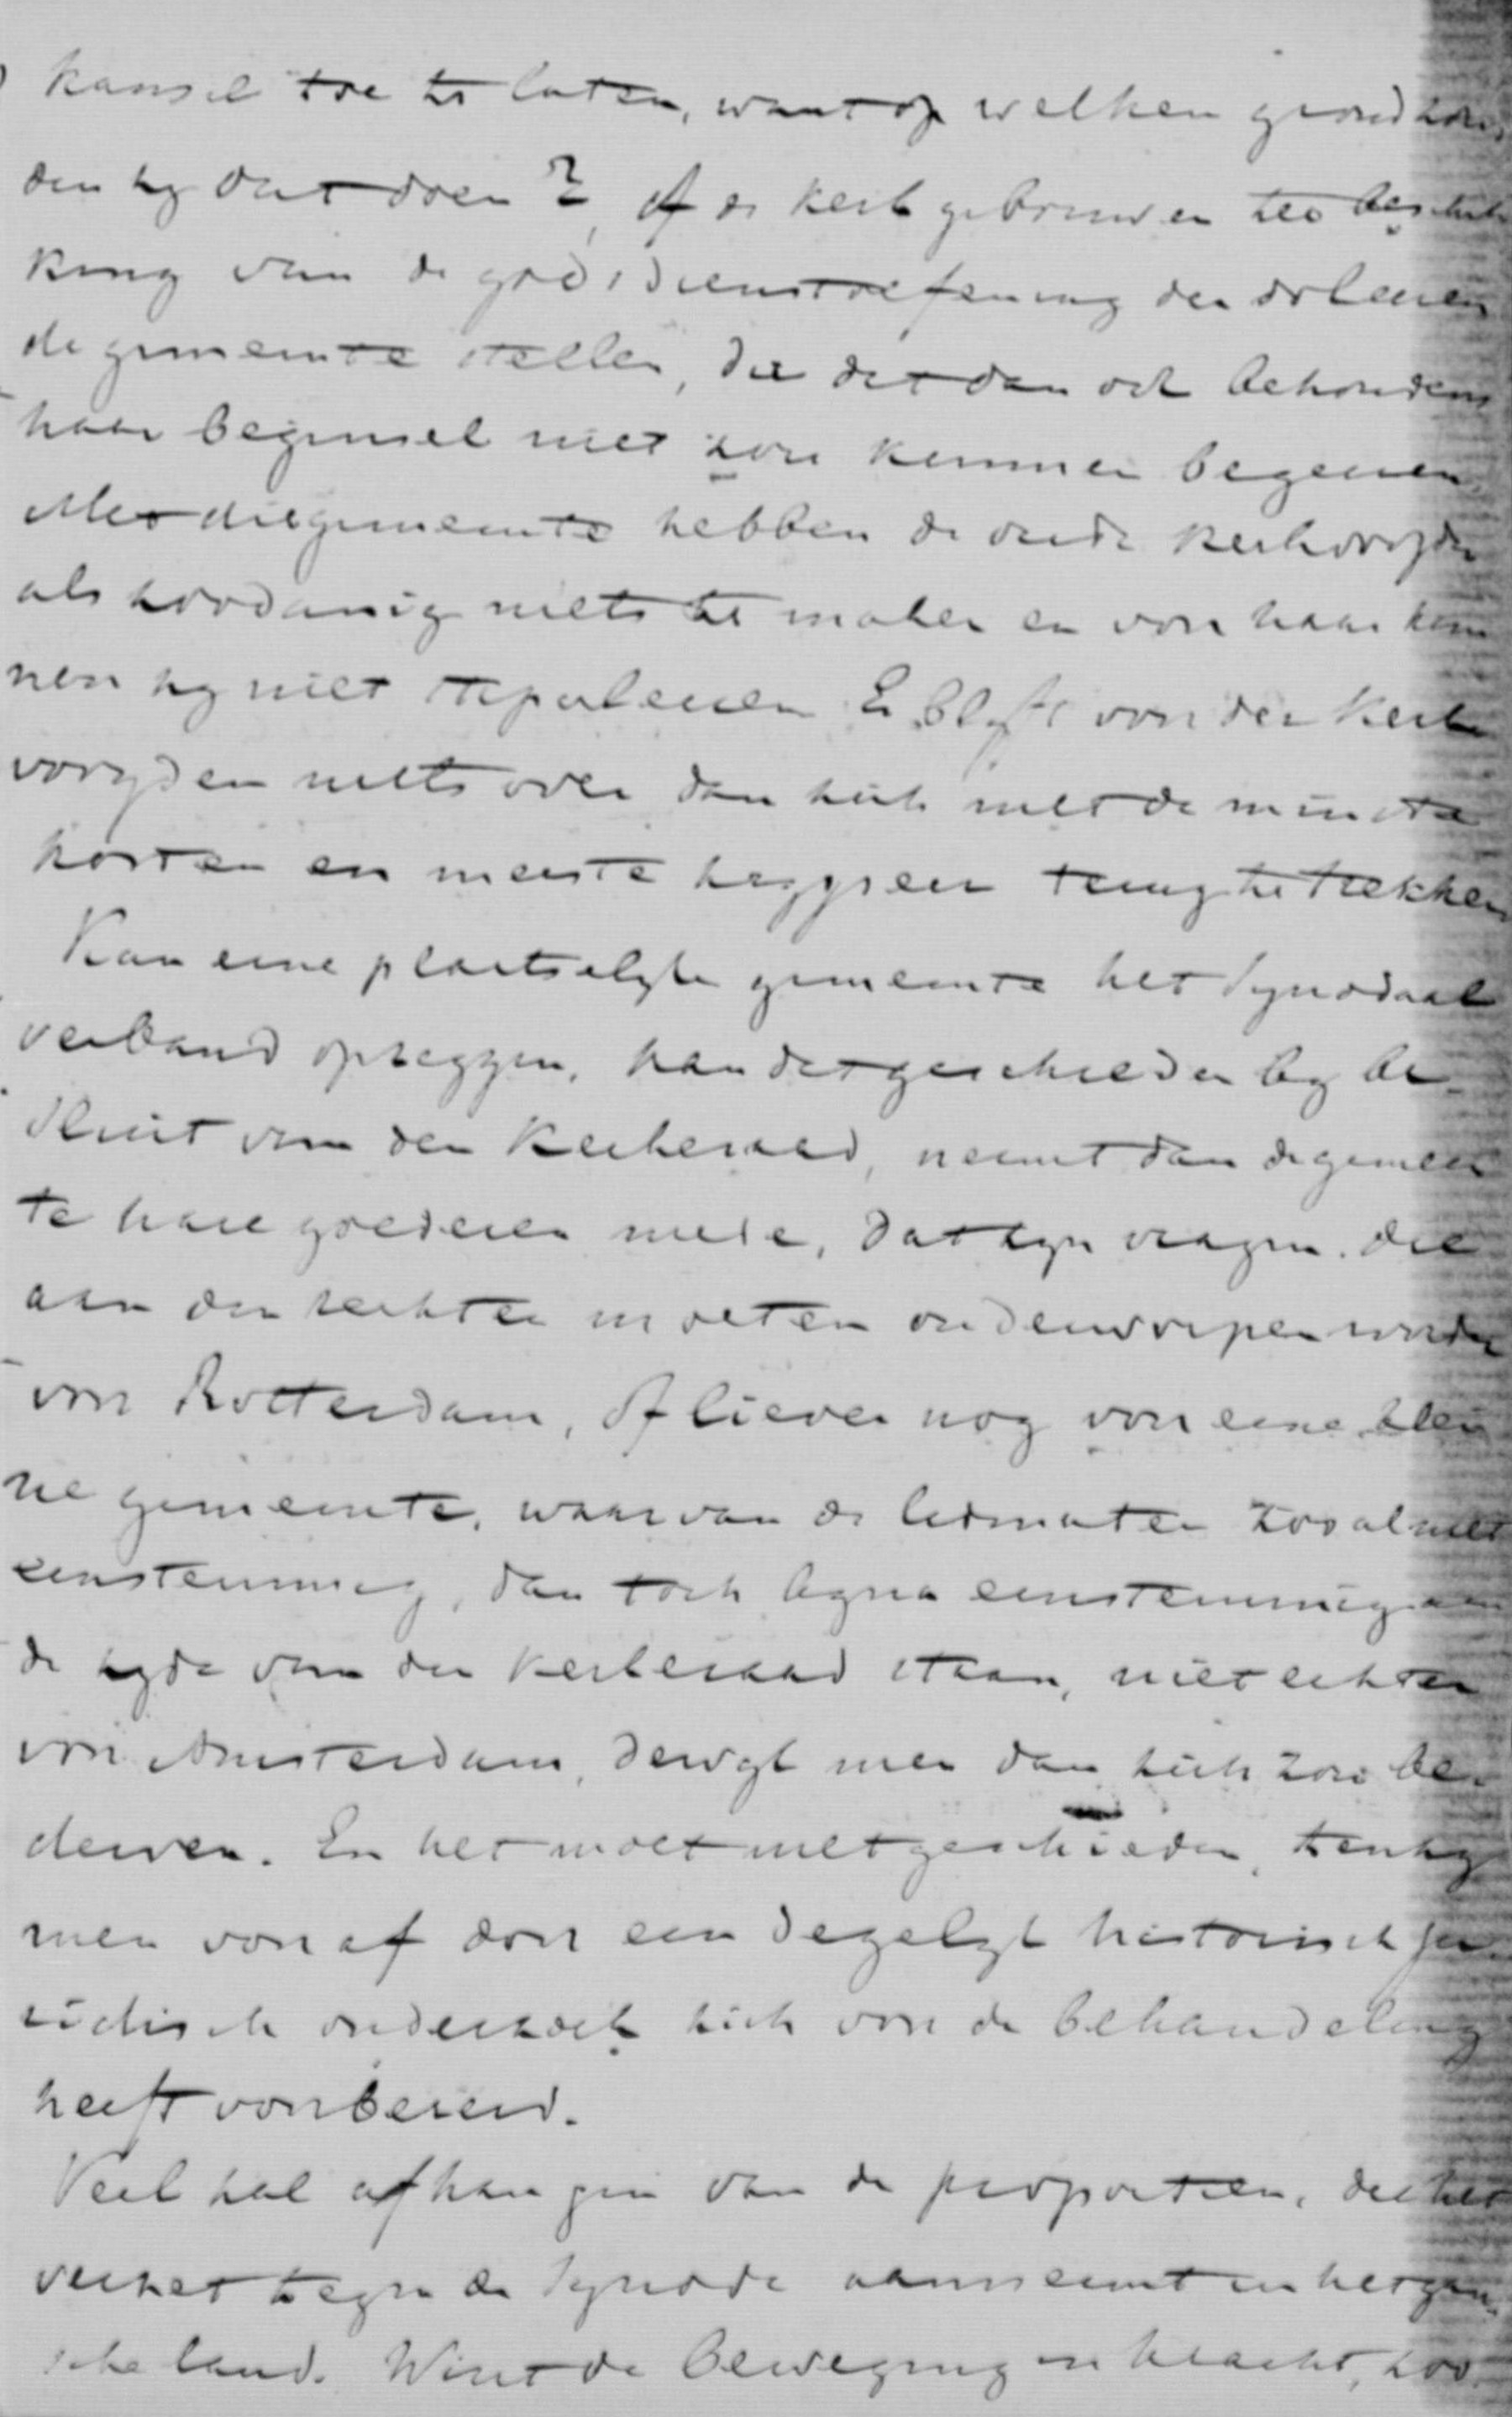 kansel toe te laten, want op welken grond zou-
den zy dat doen? of de kerkgebouwen ter beschik
king van de godsdienstoefening der doleeren
de gemeente stellen, die dat dan ook behoudens
haar beginsel niet zou kunnen begeeren.
Met die gemeente hebben de oude kerkvoogden
als zoodanig niets te maken en voor haar kun
nen zy niet stipuleeren. Er blyft voor de kerk
voogden niets over dan zich met de minste
kosten en meeste zegeren terug te trekken
Kan eene plaatselyke gemeente het Synodaal
verband opzeggen, kan dat geschieden by be-
sluit van den Kerkeraad, neemt dan de gemeen
te hare goederen mede, dat zyn vragen die
aan den rechter moeten onderworpen worden
voor Rotterdam, of liever nog voor eene klei
ne gemeente, waarvan de ledematen zoo al niet
eenstemmig, dan toch byna eenstemmig aan
de zyde van den kerkeraad staan, niet echter
voor Amsterdam, dewyl men dan zich zou be-
derven. En het moet niet geschieden, tenzy
men vooraf door een degelyk historisch ju-
ridisch onderzoek zich voor de behandeling
heeft voorbereid.
Veel zal afhangen van de proportien, die het
verzet tegen de Synode aanneemt in het gan-
sche land. Wint de beweging in kracht, zoo